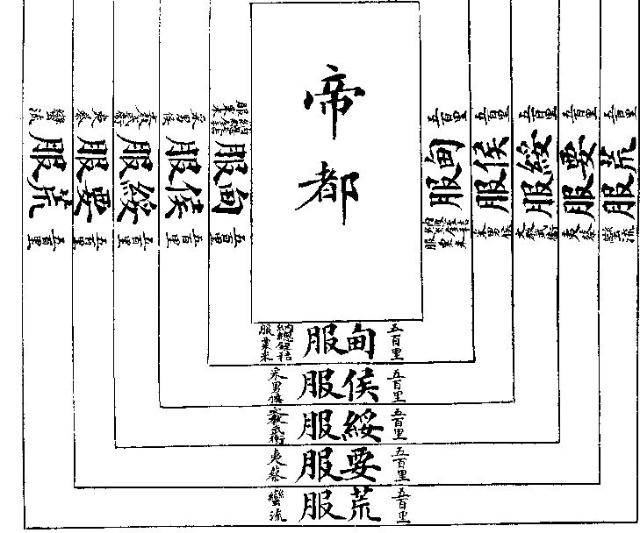 帝都
五百里 甸服 納總銍秸服粟米
五百里 侯服 采男侯
五百里 綏服
五百里 要服 夷蔡
五百里 荒服 蠻流
五百里 甸服
五百里 侯服 采男侯
五百里 綏服
五百里 要服 夷蔡
五百里 荒服 蠻流
五百里 甸服
五百里 侯服 采男侯
五百里 綏服
五百里 要服 夷蔡
五百里 荒服 蠻流